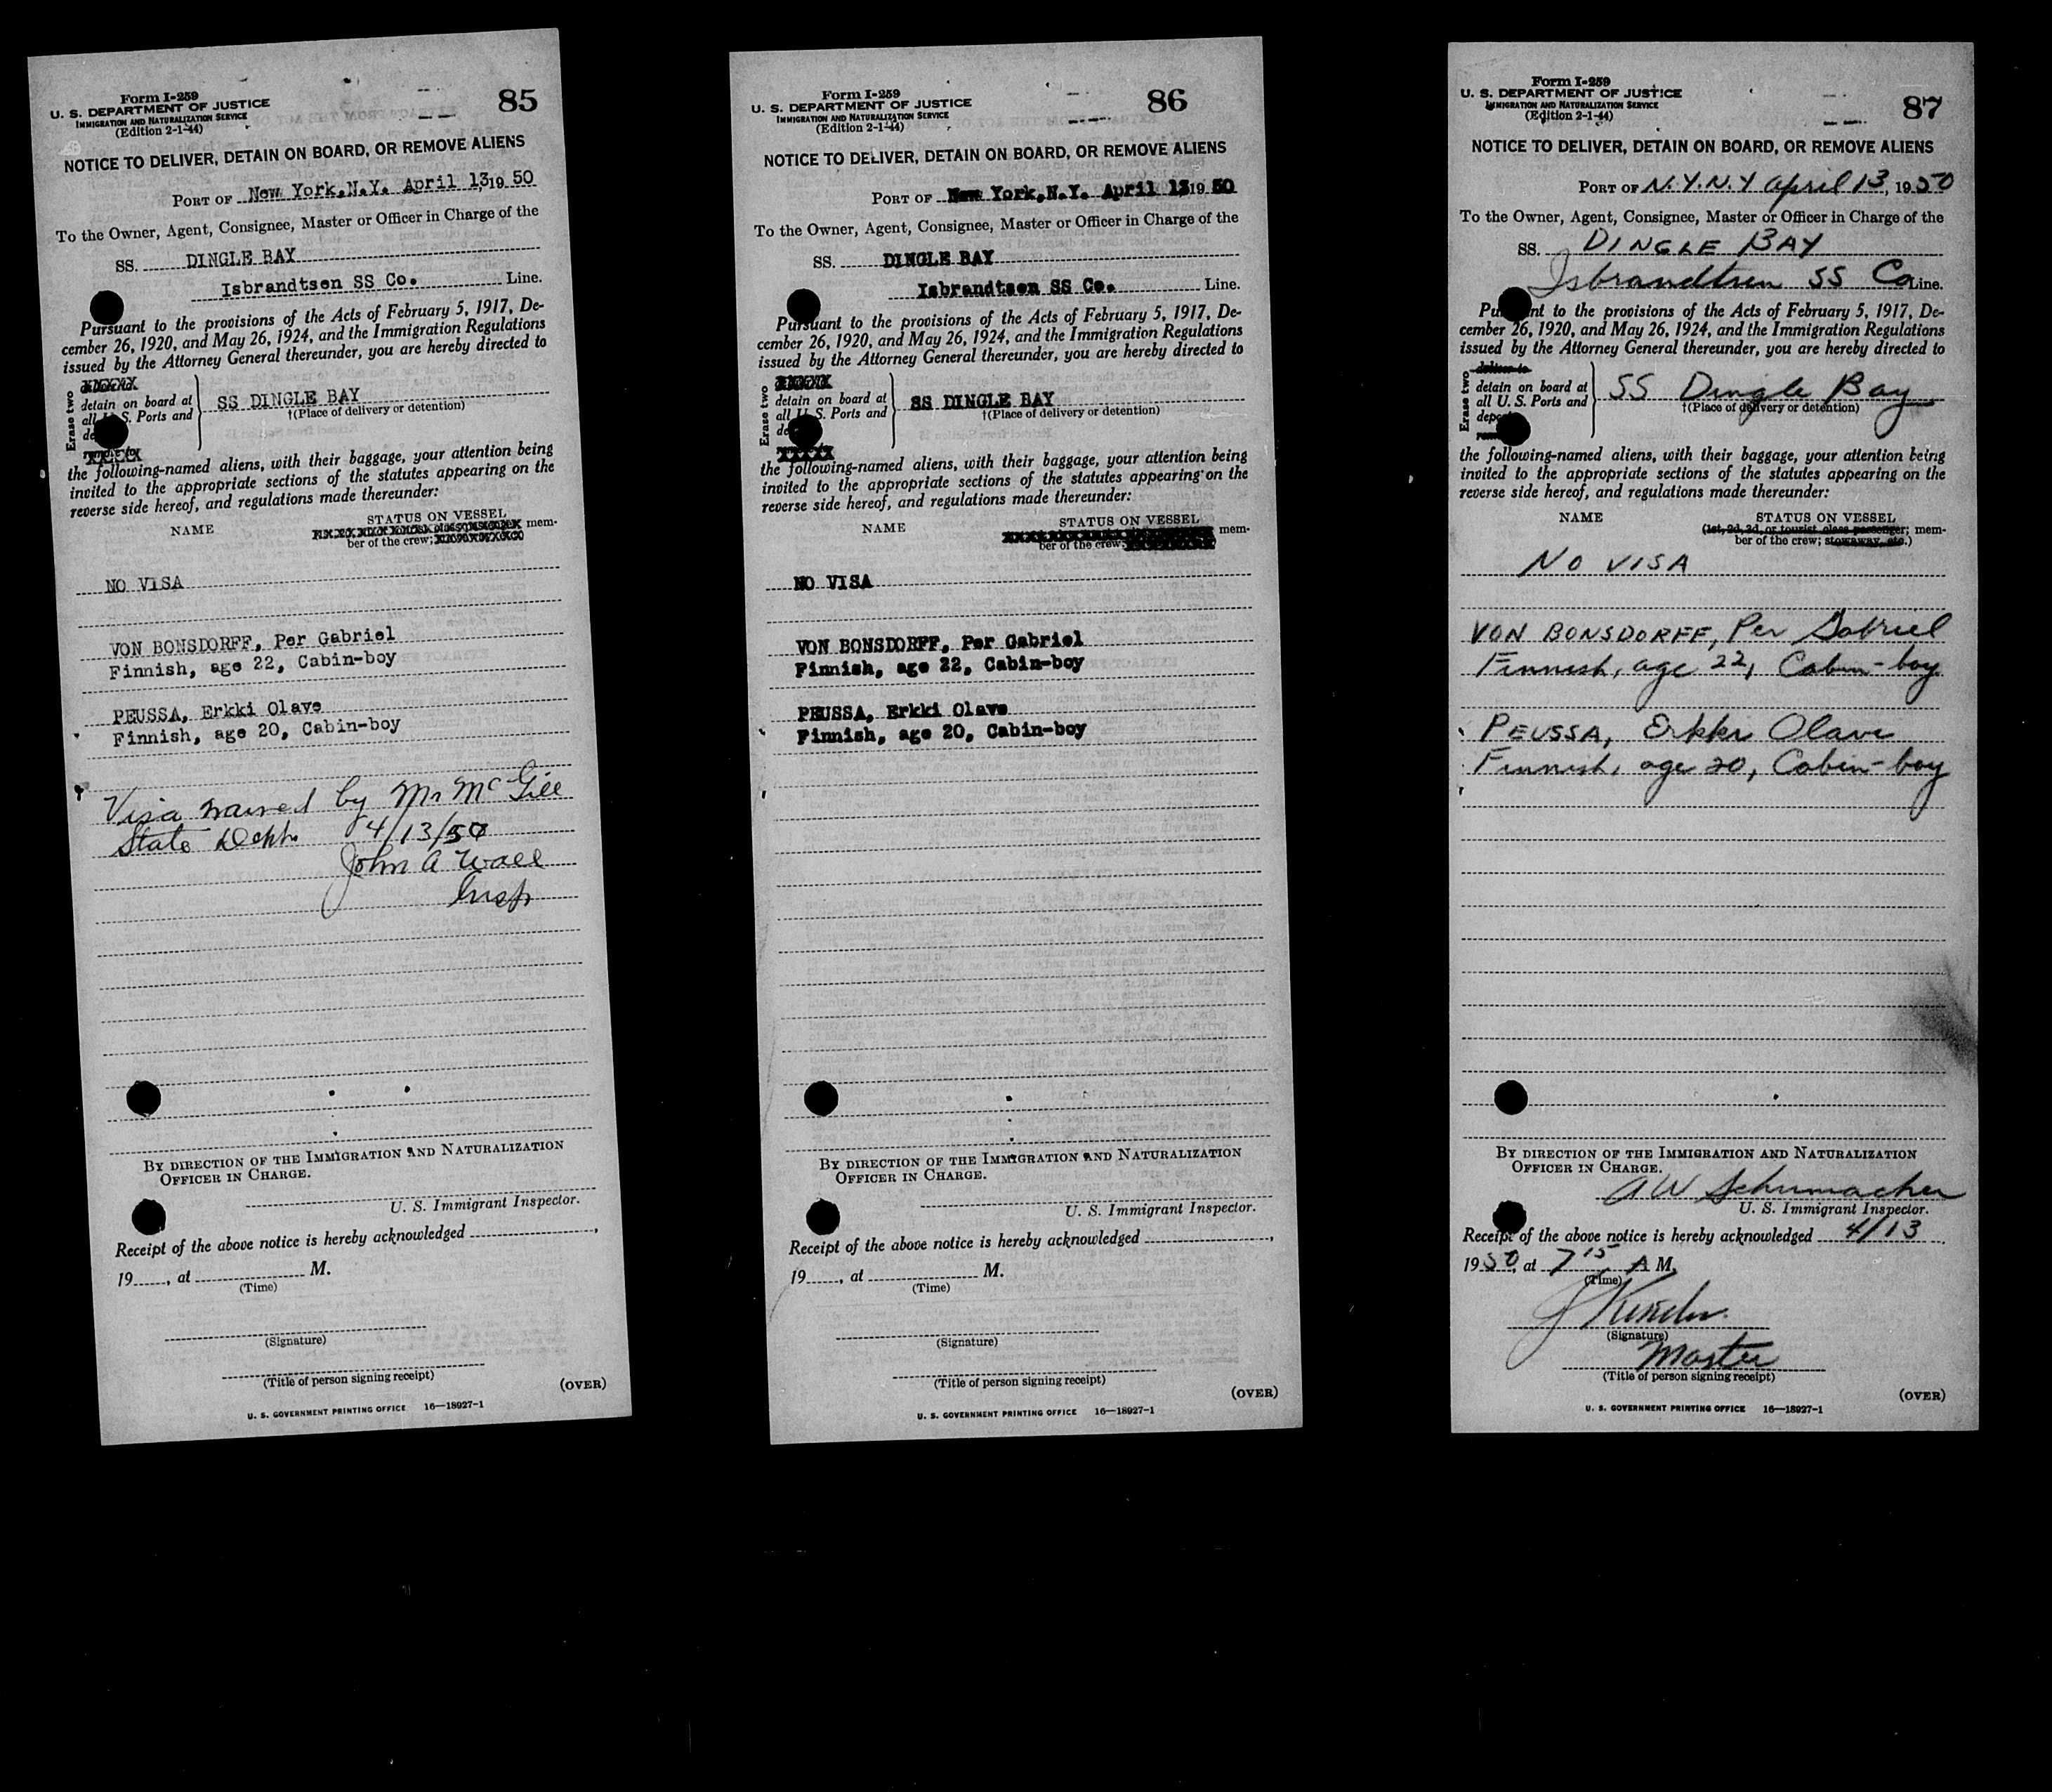 Form I-259
U. S. DEPARTMENT OF JUSTICE
IMMIGRATION AND NATURALIZATION SERVICE
(Edition 2-1-44)
85
NOTICE TO DELIVER, DETAIN ON BOARD, OR REMOVE ALIENS
PORT OF New York,N.Y. April 13 19 50
To the Owner, Agent, Consignee, Master or Officer in Charge of the
SS. DINGLE BAY
Isbrandtsen SS Co. Line.
Pursuant to the provisions of the Acts of February 5, 1917, De-
cember 26, 1920, and May 26, 1924, and the Immigration Regulations
issued by the Attorney General thereunder, you are hereby directed to
Erase two
detain on board at
all U. S. Ports and
SS DINGLE BAY
†(Place of delivery or detention)
the following-named aliens, with their baggage, your attention being
invited to the appropriate sections of the statutes appearing on the
reverse side hereof, and regulations made thereunder:
NAME STATUS ON VESSEL
mem-
ber of the crew;
NO VISA
VON BONSDORFF, Per Gabriel
Finnish, age 22, Cabin-boy
PEUSSA, Erkki Olave
Finnish, age 20, Cabin-boy
Visa waived by Mr McGill
State Dept. 4/13/50
John A Wall
Insp
BY DIRECTION OF THE IMMIGRATION AND NATURALIZATION
OFFICER IN CHARGE.
U. S. Immigrant Inspector.
Receipt of the above notice is hereby acknowledged ,
19 , at M.
(Time)
(Signature)
(Title of person signing receipt)
(OVER)
U. S. GOVERNMENT PRINTING OFFICE 16—18927-1
Form I-259
U. S. DEPARTMENT OF JUSTICE
IMMIGRATION AND NATURALIZATION SERVICE
(Edition 2-1-44)
86
NOTICE TO DELIVER, DETAIN ON BOARD, OR REMOVE ALIENS
PORT OF New York,N.Y. April 13 19 50
To the Owner, Agent, Consignee, Master or Officer in Charge of the
SS. DINGLE BAY
Isbrandtsen SS Co. Line.
Pursuant to the provisions of the Acts of February 5, 1917, De-
cember 26, 1920, and May 26, 1924, and the Immigration Regulations
issued by the Attorney General thereunder, you are hereby directed to
Erase two
detain on board at
all U. S. Ports and
SS DINGLE BAY
†(Place of delivery or detention)
the following-named aliens, with their baggage, your attention being
invited to the appropriate sections of the statutes appearing on the
reverse side hereof, and regulations made thereunder:
NAME STATUS ON VESSEL
mem-
ber of the crew;
NO VISA
VON BONSDORFF, Per Gabriel
Finnish, age 22, Cabin-boy
PEUSSA, Erkki Olave
Finnish, age 20, Cabin-boy
BY DIRECTION OF THE IMMIGRATION AND NATURALIZATION
OFFICER IN CHARGE.
U. S. Immigrant Inspector.
Receipt of the above notice is hereby acknowledged ,
19 , at M.
(Time)
(Signature)
(Title of person signing receipt)
(OVER)
U. S. GOVERNMENT PRINTING OFFICE 16—18927-1
Form I-259
U. S. DEPARTMENT OF JUSTICE
IMMIGRATION AND NATURALIZATION SERVICE
(Edition 2-1-44)
87
NOTICE TO DELIVER, DETAIN ON BOARD, OR REMOVE ALIENS
PORT OF N.Y.N.Y April 13, 1950
To the Owner, Agent, Consignee, Master or Officer in Charge of the
SS. DINGLE BAY
Isbrandtsen SS Co Line.
Pursuant to the provisions of the Acts of February 5, 1917, De-
cember 26, 1920, and May 26, 1924, and the Immigration Regulations
issued by the Attorney General thereunder, you are hereby directed to
Erase two
deliver to
detain on board at
all U. S. Ports and
SS Dingle Bay
†(Place of delivery or detention)
the following-named aliens, with their baggage, your attention being
invited to the appropriate sections of the statutes appearing on the
reverse side hereof, and regulations made thereunder:
NAME STATUS ON VESSEL
(1st, 2d, 3d, or tourist class passenger; mem-
ber of the crew; stowaway, etc.)
NO VISA
VON BONSDORFF, Per Gabriel
Finnish, age 22, Cabin-boy
PEUSSA, Erkki Olave
Finnish, age 20, Cabin-boy
BY DIRECTION OF THE IMMIGRATION AND NATURALIZATION
OFFICER IN CHARGE.
A W Schumacher
U. S. Immigrant Inspector.
Receipt of the above notice is hereby acknowledged 4/13,
1950, at 7 15 A M.
(Time)
(Signature)
Master
(Title of person signing receipt)
(OVER)
U. S. GOVERNMENT PRINTING OFFICE 16—18927-1